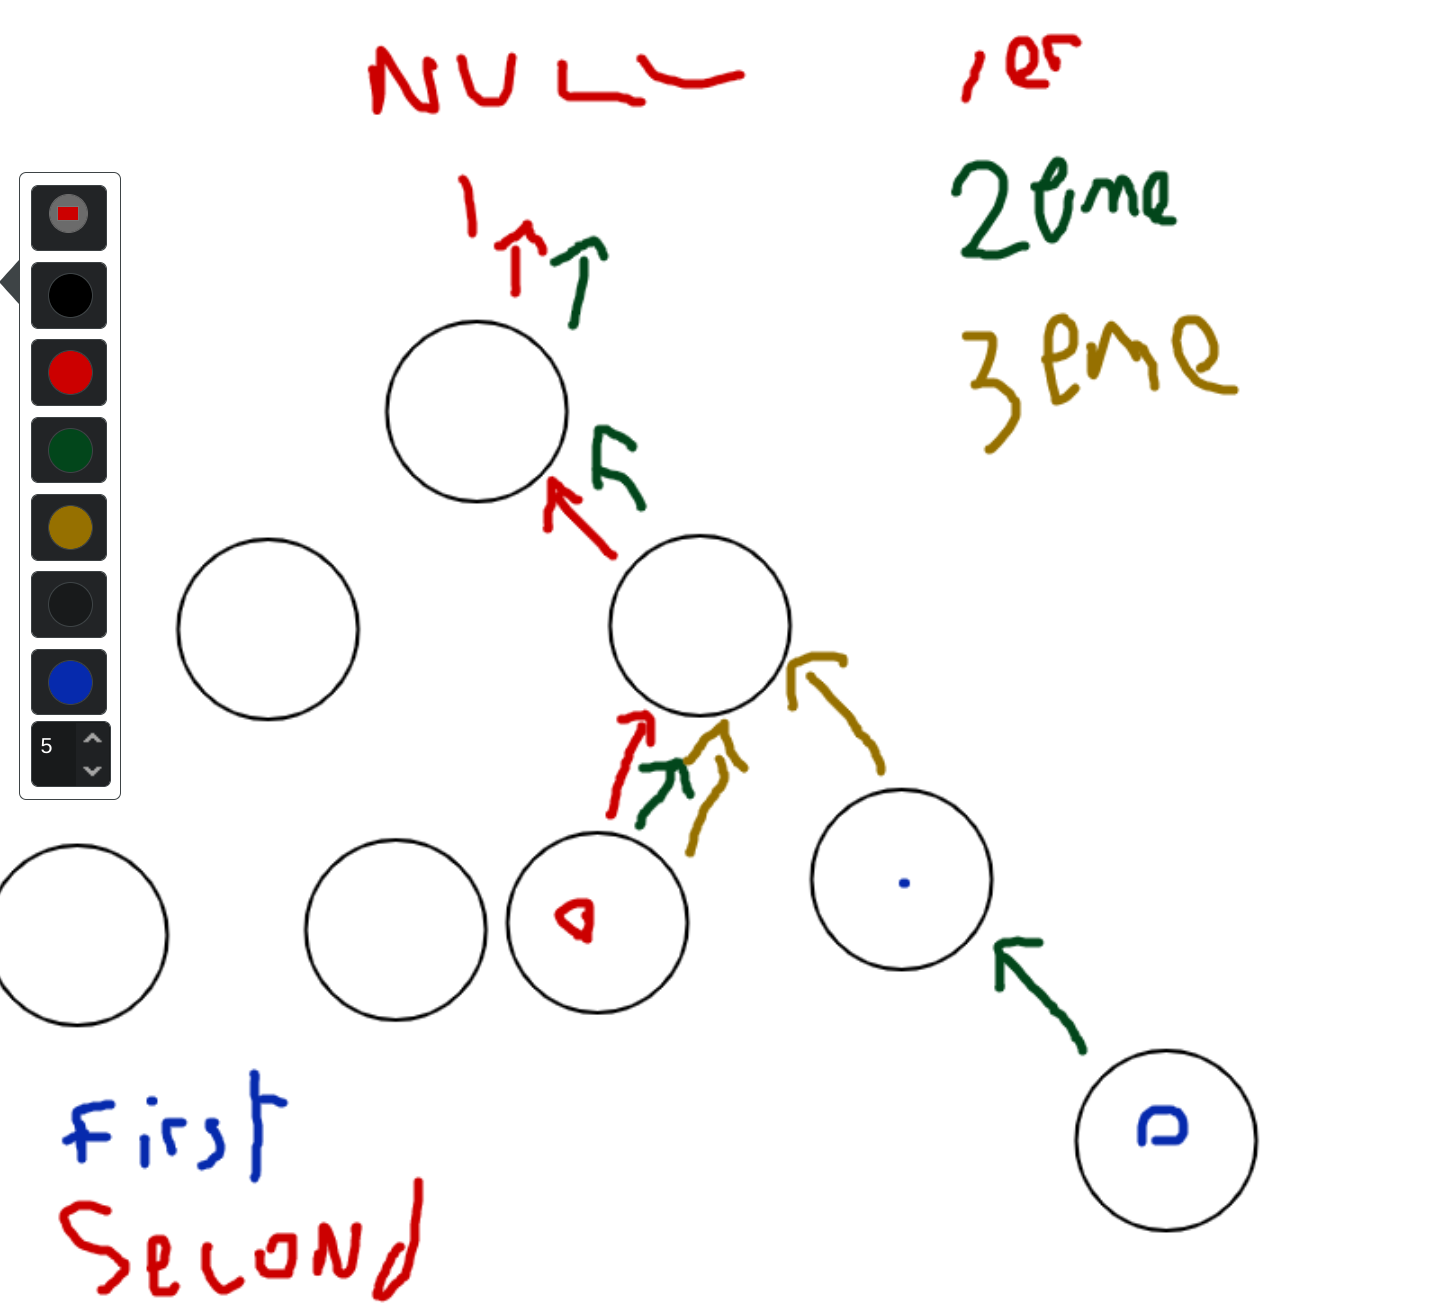 NULL
1er
2eme
3eme
5
First
Second